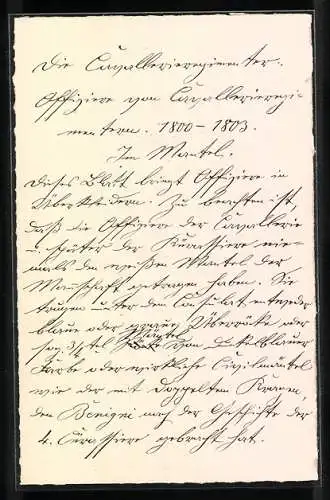 Die Cavallerieregimenter.
Offiziere von Cavallerieregi-
mentern. 1800–1803.
Im Mantel.
Dieses Blatt bringt Offiziere in
Überkleidern. Zu beachten ist,
daß die Offiziere der Cavallerie
u. später der Kürassiere nie-
mals den weißen Mantel der
Mannschaft getragen haben. Sie
trugen unter dem Consulat entweder
blaue oder graue Überröcke oder
sog. 3/4tel Mäntel von dunkelblauer
Farbe oder wirkliche Civilmäntel
wie der mit doppeltem Kragen,
den Benigni nach der Geschichte der
4. Cürassiere gebracht hat.